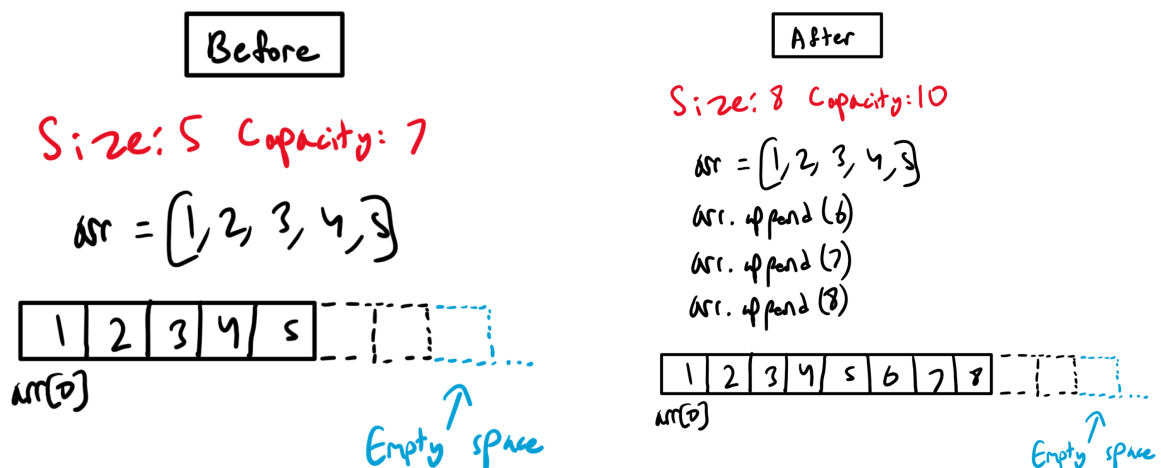 Before
Size: 5 Capacity: 7
arr = [1, 2, 3, 4, 5]
1 2 3 4 5
arr[0]
Empty space
After
Size: 8 Capacity: 10
arr = [1, 2, 3, 4, 5]
arr. append (6)
arr. append (7)
arr. append (8)
1 2 3 4 5 6 7 8
arr[0]
Empty space